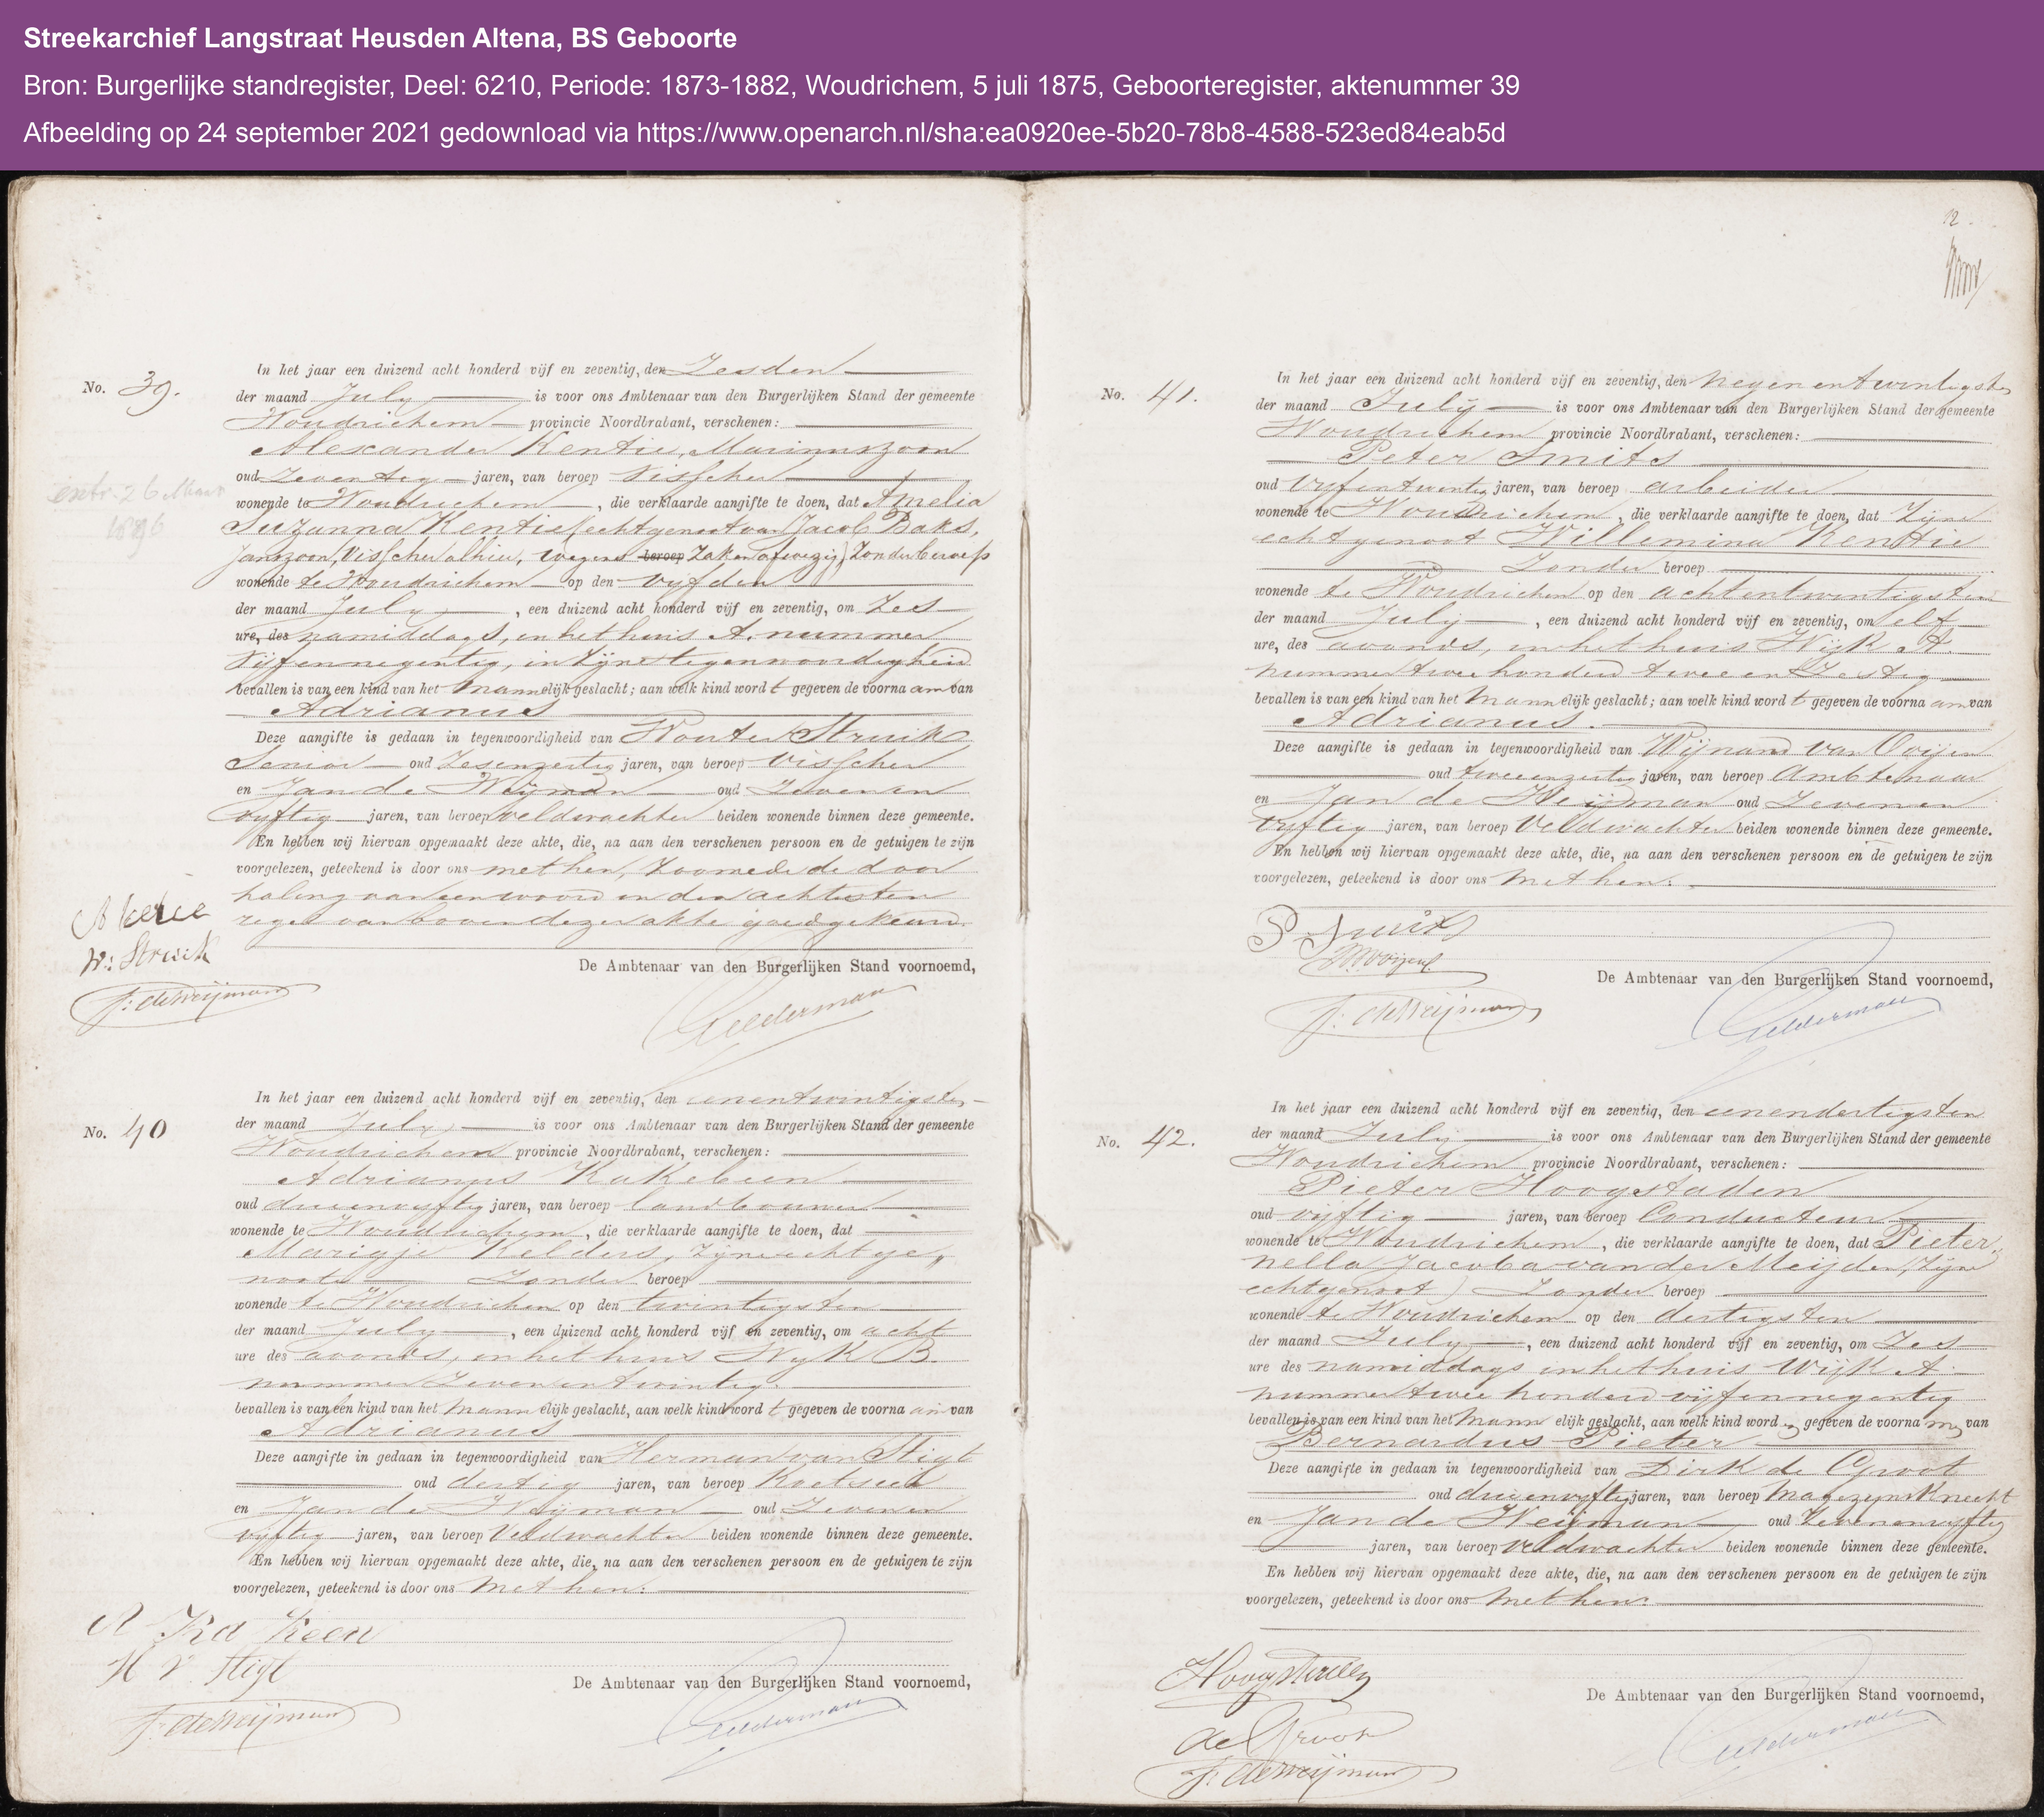 Streekarchief Langstraat Heusden Altena, BS Geboorte
Bron: Burgerlijke standregister, Deel: 6210, Periode: 1873-1882, Woudrichem, 5 juli 1875, Geboorteregister, aktenummer 39
Afbeelding op 24 september 2021 gedownload via https://www.openarch.nl/sha:ea0920ee-5b20-78b8-4588-523ed84eab5d
No. 39.
In het jaar een duizend acht honderd vijf en zeventig, den Zesden
der maand July is voor ons Ambtenaar van den Burgerlijken Stand der gemeente
Woudrichem provincie Noordbrabant, verschenen:
Alexander Kentie, Marinuszoon
oud Zeventig jaren, van beroep Visscher
extr. 26 Maart
1896
wonende te Woudrichem, die verklaarde aangifte te doen, dat Amelia
Suzanna Kentie (echtgenoot van Jacob Baks,
Janszoon, Visscher alhier, wegens beroep Zaken afwezig) Zonder beroep
wonende te Woudrichem op den vyfden
der maand July, een duizend acht honderd vijf en zeventig, om Zes
ure, des namiddags, in het huis A. nummer
Vijfennegentig, in Zijne tegenwoordigheid
bevallen is van een kind van het mannelijk geslacht; aan welk kind wordt gegeven de voornaam van
Adrianus
Deze aangifte is gedaan in tegenwoordigheid van Wouter Struik
Senior oud Zesenzestig jaren, van beroep Visscher
en Jan de Weijman oud Zeven en
vyftig jaren, van beroep veldwachter beiden wonende binnen deze gemeente.
En hebben wij hiervan opgemaakt deze akte, die, na aan den verschenen persoon en de getuigen te zijn
voorgelezen, geteekend is door ons met hen, Zoomede de door
haling van een woord in den achtsten
regel van boven dezer akte goedgekeurd.
W: Struik
J: de Weijman
De Ambtenaar van den Burgerlijken Stand voornoemd,
Gelderman
No. 40
In het jaar een duizend acht honderd vijf en zeventig, den eenentwintigsten
der maand July is voor ons Ambtenaar van den Burgerlijken Stand der gemeente
Woudrichem provincie Noordbrabant, verschenen:
Adrianus Kakebeen
oud drieenvyftig jaren, van beroep landbouwer
wonende te Woudrichem, die verklaarde aangifte te doen, dat
Marigje Kelders, zijne echtge„
noote Zonder beroep
wonende te Woudrichem op den twintigsten
der maand July, een duizend acht honderd vijf en zeventig, om acht
ure des avonds, in het huis Wyk B.
nummer Zevenentwintig.
bevallen is van een kind van het mannelijk geslacht, aan welk kind wordt gegeven de voornaam van
Adrianus
Deze aangifte in gedaan in tegenwoordigheid van Herman van Stigt
oud dertig jaren, van beroep Koetsier
en Jan de Weijman oud Zeven en
vyftig jaren, van beroep Veldwachter beiden wonende binnen deze gemeente.
En hebben wij hiervan opgemaakt deze akte, die, na aan den verschenen persoon en de getuigen te zijn
voorgelezen, geteekend is door ons met hen.
H v Stigt
J: de Weijman
De Ambtenaar van den Burgerlijken Stand voornoemd,
Gelderman
12.
No. 41.
In het jaar een duizend acht honderd vijf en zeventig, den negenentwintigsten
der maand July is voor ons Ambtenaar van den Burgerlijken Stand der gemeente
Woudrichem provincie Noordbrabant, verschenen:
Peter Smits
oud vyfentwintig jaren, van beroep arbeider
wonende te Woudrichem, die verklaarde aangifte te doen, dat Zijne
echtgenoot Willemina Kentie
Zonder beroep
wonende te Woudrichem op den achtentwintigsten
der maand July, een duizend acht honderd vijf en zeventig, om elf
ure, des avonds, in het huis Wijk A.
nummer twee honderd twee en Zestig
bevallen is van een kind van het mannelijk geslacht; aan welk kind wordt gegeven de voornaam van
Adrianus.
Deze aangifte is gedaan in tegenwoordigheid van Wijnand van Ooijen
oud tweeenzestig jaren, van beroep Ambtenaar
en Jan de Weijman oud Zevenen
vyftig jaren, van beroep Veldwachter beiden wonende binnen deze gemeente.
En hebben wij hiervan opgemaakt deze akte, die, na aan den verschenen persoon en de getuigen te zijn
voorgelezen, geteekend is door ons met hen.
P Smits
J: de Weijman
De Ambtenaar van den Burgerlijken Stand voornoemd,
Gelderman
No. 42.
In het jaar een duizend acht honderd vijf en zeventig, den eenendertigsten
der maand July is voor ons Ambtenaar van den Burgerlijken Stand der gemeente
Woudrichem provincie Noordbrabant, verschenen:
Pieter Hoogstaden
oud vyftig jaren, van beroep Conducteur
wonende te Woudrichem, die verklaarde aangifte te doen, dat Pieter„
nella Jacoba van der Meijden, (Zijne
echtgenoot) Zonder beroep
wonende te Woudrichem op den dertigsten
der maand July, een duizend acht honderd vijf en zeventig, om Zes
ure des namiddags in het huis Wijk A
nummer twee honderd vijfennegentig
bevallen is van een kind van het mannelijk geslacht, aan welk kind word en gegeven de voornamen van
Bernardus Pieter
Deze aangifte in gedaan in tegenwoordigheid van Dirk de Groot
oud drieenvyftig jaren, van beroep Magazynsknecht
en Jan de Weijman oud Zevenenvyftig
jaren, van beroep veldwachter beiden wonende binnen deze gemeente.
En hebben wij hiervan opgemaakt deze akte, die, na aan den verschenen persoon en de getuigen te zijn
voorgelezen, geteekend is door ons met hen.
de Groot
J: de Weijman
De Ambtenaar van den Burgerlijken Stand voornoemd,
Gelderman